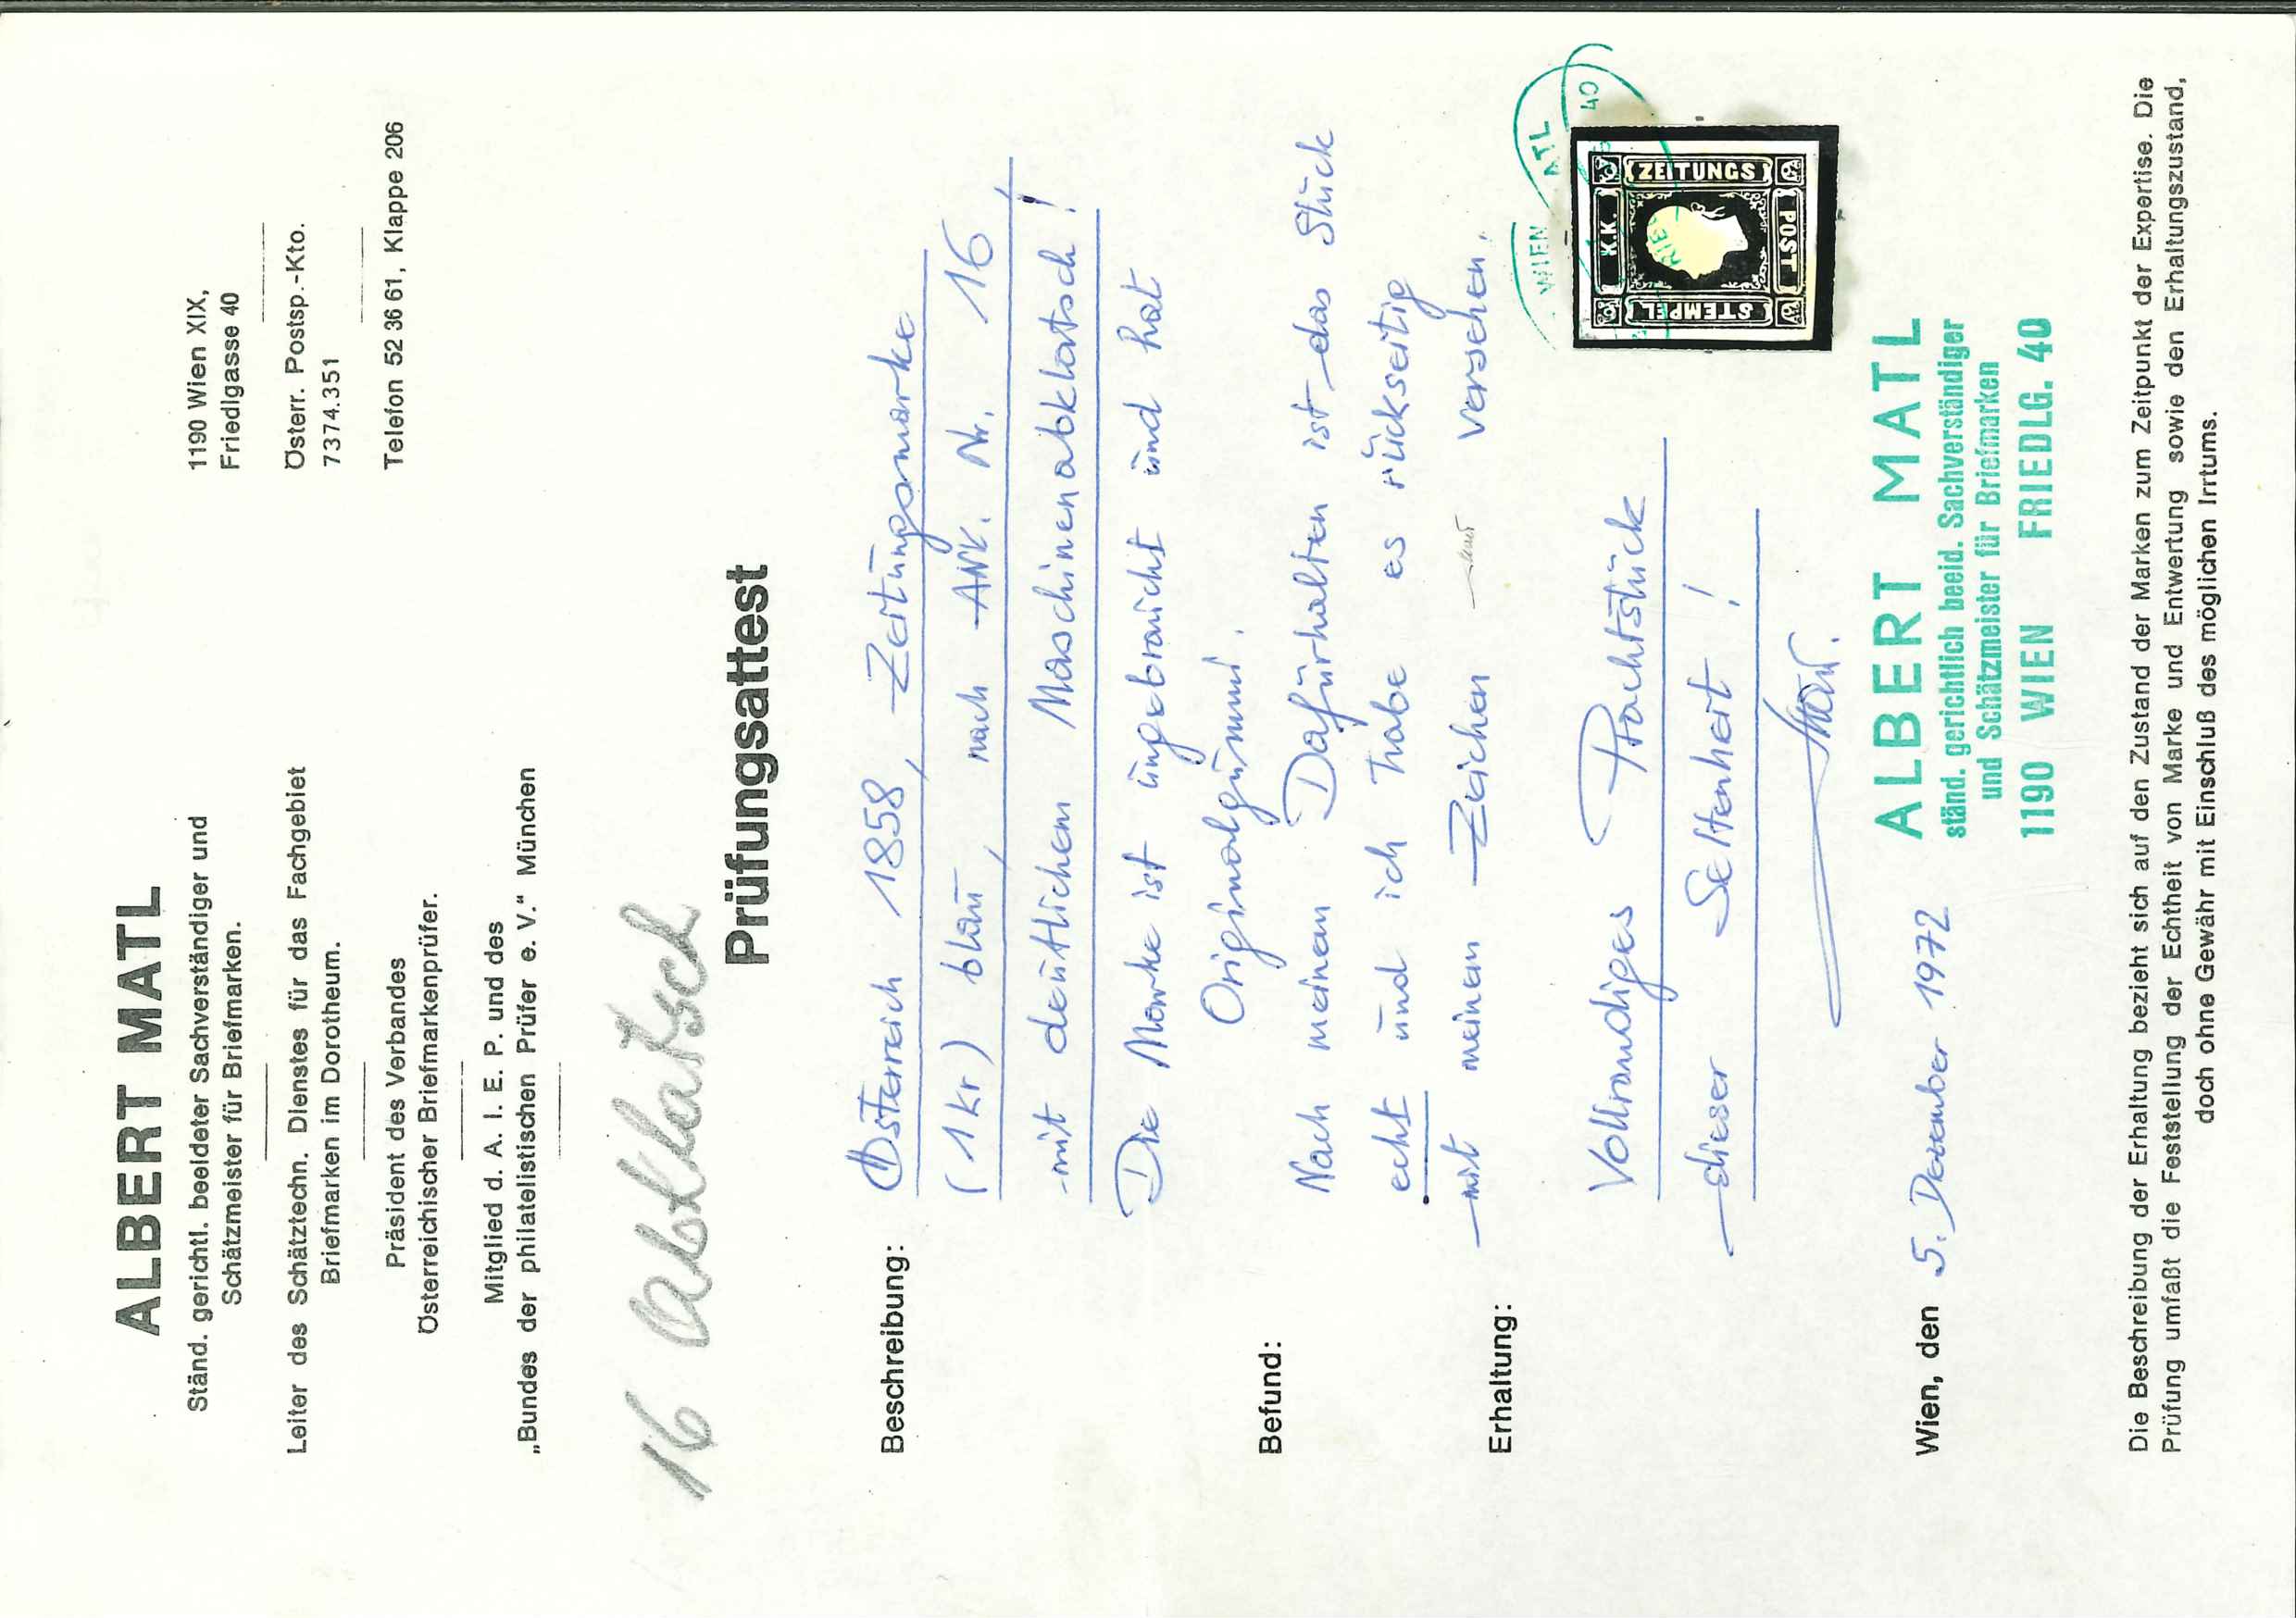 ALBERT MATL
Ständ. gerichtl. beeideter Sachverständiger und
Schätzmeister für Briefmarken.
Leiter des Schätztechn. Dienstes für das Fachgebiet
Briefmarken im Dorotheum.
Präsident des Verbandes
Österreichischer Briefmarkenprüfer.
Mitglied d. A. I. E. P. und des
„Bundes der philatelistischen Prüfer e. V.“ München
1190 Wien XIX,
Friedlgasse 40
Österr. Postsp.-Kto.
7374.351
Telefon 52 36 61, Klappe 206
16 Abklatsch
Prüfungsattest
Beschreibung:
Österreich 1858, Zeitungsmarke
(1 kr) blau, nach ANK. Nr. 16
mit deutlichem Maschinenabklatsch!
Die Marke ist ungebraucht und hat
Originalgummi.
Befund:
Nach meinem Dafürhalten ist das Stück
echt und ich habe es rückseitig
mit meinem Zeichen versehen.
Erhaltung:
Vollrandiges Prachtstück
dieser Seltenheit!
WIEN ATL 40
K.K.
ZEITUNGS
POST
STEMPEL
Wien, den 5. Dezember 1972
ALBERT MATL
ständ. gerichtlich beeid. Sachverständiger
und Schätzmeister für Briefmarken
1190 WIEN FRIEDLG. 40
Die Beschreibung der Erhaltung bezieht sich auf den Zustand der Marken zum Zeitpunkt der Expertise. Die
Prüfung umfaßt die Feststellung der Echtheit von Marke und Entwertung sowie den Erhaltungszustand,
doch ohne Gewähr mit Einschluß des möglichen Irrtums.